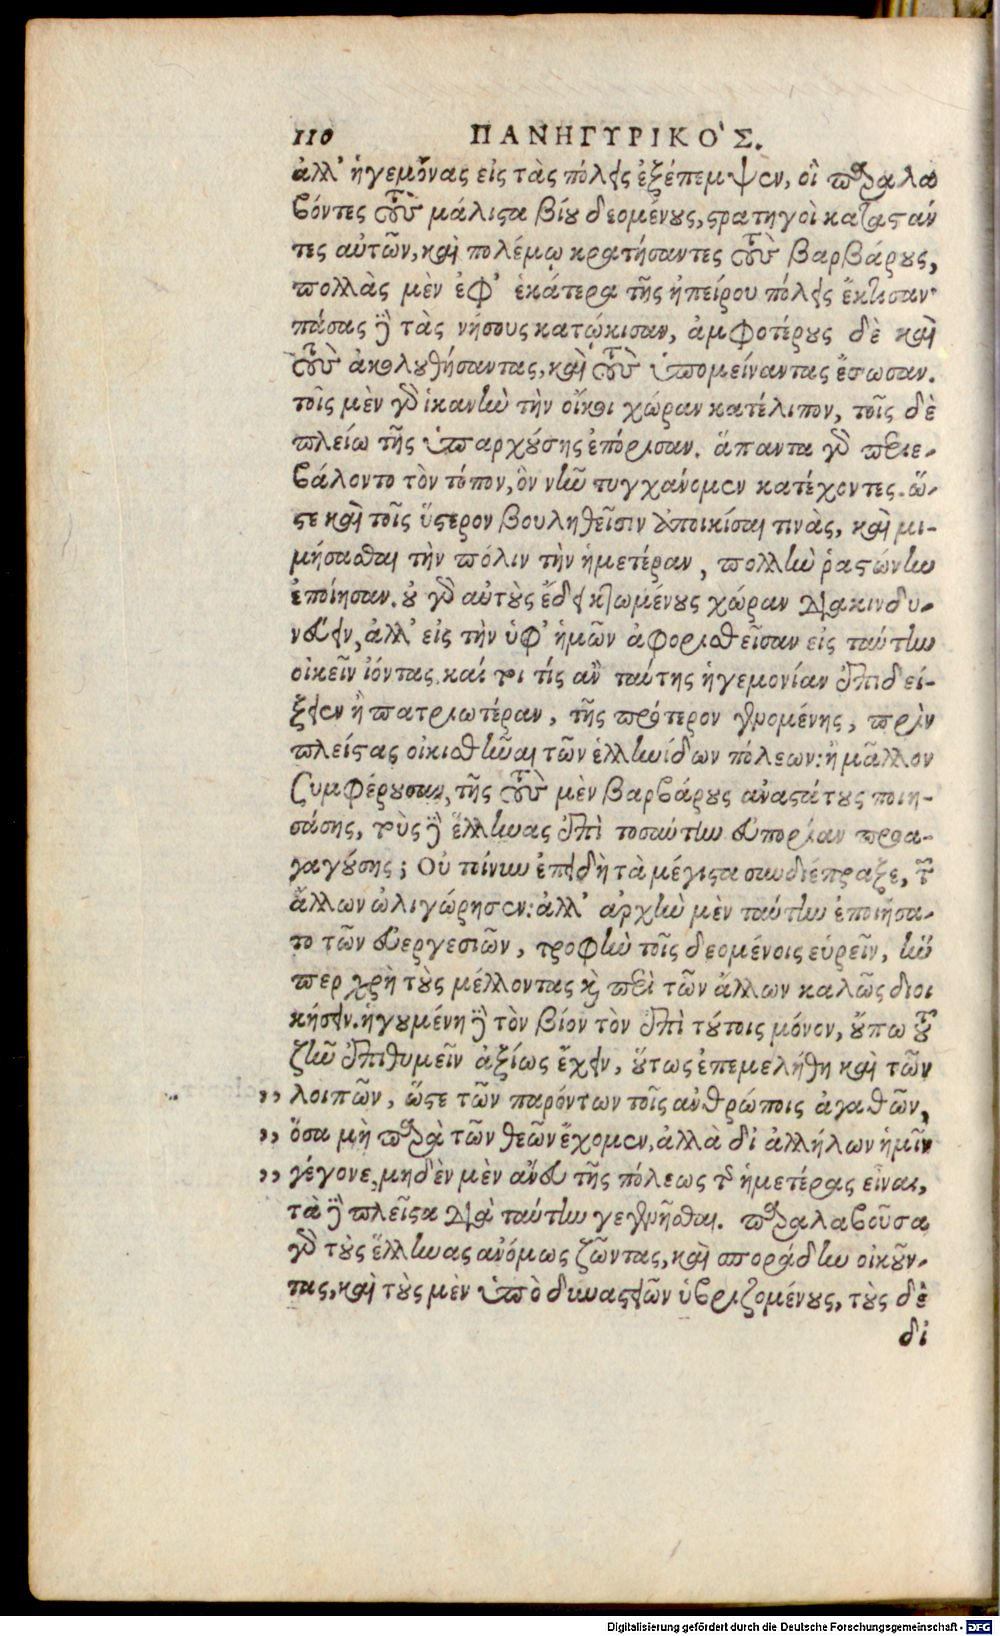 110 ΠΑΝΗΓΥΡΙΚΟ'Σ.
ἀλλ' ἡγεμόνας εἰς τὰς πόλεις ἐξέπεμψεν, οἳ παραλα
βόντες τοὺς μάλιστα βίου δεομένους, στρατηγοὶ καταστάν
τες αὐτῶν, καὶ πολέμῳ κρατήσαντες τοὺς βαρβάρους,
πολλὰς μὲν ἐφ' ἑκάτερα τῆς ἠπείρου πόλεις ἔκτισαν·
πάσας δὲ τὰς νήσους κατῴκισαν, ἀμφοτέρους δὲ καὶ
τοὺς ἀκολουθήσαντας, καὶ τοὺς ὑπομείναντας ἔσωσαν.
τοῖς μὲν γὰρ ἱκανὴν τὴν οἴκοι χώραν κατέλιπον, τοῖς δὲ
πλείω τῆς ὑπαρχούσης ἐπόρισαν. ἅπαντα γὰρ περιε-
βάλοντο τὸν τόπον, ὃν νῦν τυγχάνομεν κατέχοντες. ὥ-
στε καὶ τοῖς ὕστερον βουληθεῖσιν ἀποικίσαι τινὰς, καὶ μι-
μήσασθαι τὴν πόλιν τὴν ἡμετέραν, πολλὴν ῥαστώνην
ἐποίησαν. οὐ γὰρ αὐτοὺς ἔδει κτωμένους χώραν διακινδυ-
νεύειν, ἀλλ' εἰς τὴν ὑφ' ἡμῶν ἀφορισθεῖσαν εἰς ταύτην
οἰκεῖν ἰόντας. καί τοι τίς ἂν ταύτης ἡγεμονίαν ἐπιδεί-
ξειεν ἢ πατριωτέραν, τῆς πρότερον γενομένης, πρὶν
πλείστας οἰκισθῆναι τῶν ἑλληνίδων πόλεων: ἢ μᾶλλον
συμφέρουσαν, τῆς τοὺς μὲν βαρβάρους ἀναστάτους ποιη-
σάσης, τοὺς δὲ ἕλληνας ἐπὶ τοσαύτην εὐπορίαν προα-
γαγούσης; Οὐ τοίνυν ἐπειδὴ τὰ μέγιστα συνδιέπραξε, τῶν
ἄλλων ὠλιγώρησεν: ἀλλ' ἀρχὴν μὲν ταύτην ἐποιήσα-
το τῶν εὐεργεσιῶν, τροφὴν τοῖς δεομένοις εὑρεῖν, ἥν
περ χρὴ τοὺς μέλλοντας καὶ περὶ τῶν ἄλλων καλῶς διοι
κήσειν. ἡγουμένη δὲ τὸν βίον τὸν ἐπὶ τούτοις μόνον, οὔπω τοῦ
ζῆν ἐπιθυμεῖν ἀξίως ἔχειν, οὕτως ἐπεμελήθη καὶ τῶν
,, λοιπῶν, ὥστε τῶν παρόντων τοῖς ἀνθρώποις ἀγαθῶν,
,, ὅσα μὴ παρὰ τῶν θεῶν ἔχομεν, ἀλλὰ δι' ἀλλήλων ἡμῖν
,, γέγονε, μηδὲν μὲν ἄνευ τῆς πόλεως τῆς ἡμετέρας εἶναι,
τὰ δὲ πλεῖστα διὰ ταύτην γεγενῆσθαι. παραλαβοῦσα
γὰρ τοὺς ἕλληνας ἀνόμως ζῶντας, καὶ σποράδην οἰκοῦν-
τας, καὶ τοὺς μὲν ὑπὸ δυναστειῶν ὑβριζομένους, τοὺς δὲ
δι
Digitalisierung gefördert durch die Deutsche Forschungsgemeinschaft - DFG